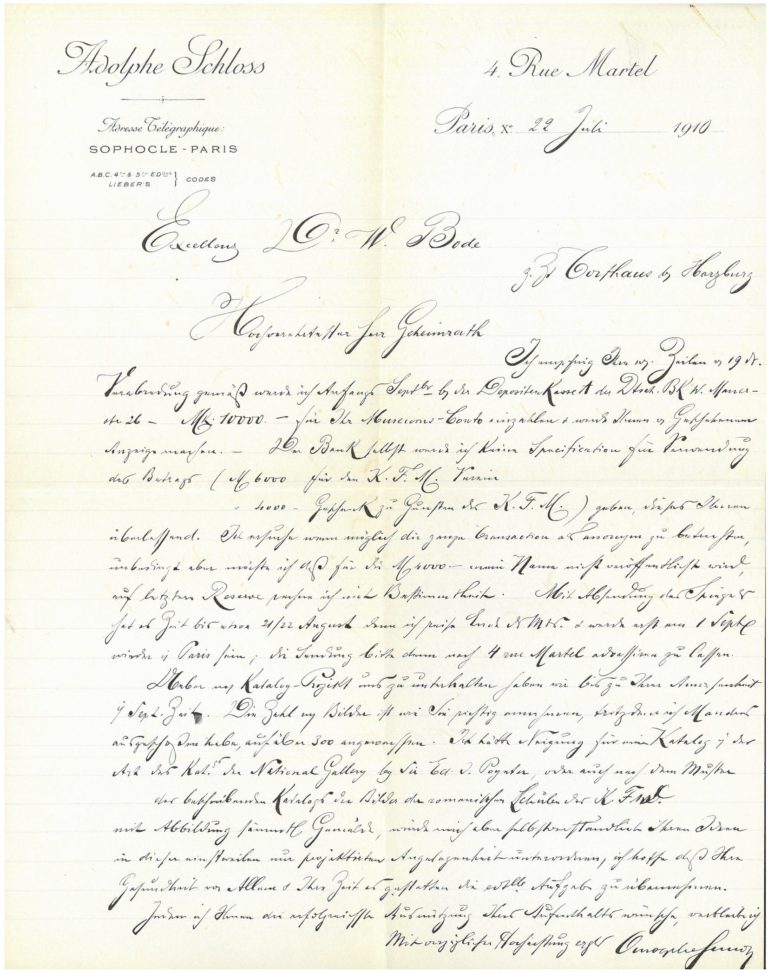 Adolphe Schloss
4, Rue Martel
Adresse Télégraphique:
SOPHOCLE-PARIS
A.B.C. 4th & 5th EDons
LIEBER'S } CODES
Paris, Xe 22 Juli 1910
Excellenz Dr W. Bode
z. Zt Torfhaus b/ Harzburg
Hochverehrtester Herr Geheimrath
Ich empfing Ihre Zeilen v 19 ds.
Verabredung gemäß werde ich Anfangs Septbr b/ der Depositenkasse A der Dtsch. BK W. Mauer-
str 26 – Mk. 10000. – für Ihr Museums-Conto einzahlen & werde Ihnen v Geschehenem
Anzeige machen. – Der Bank selbst werde ich keine Specification für Verwendung
des Betrags ( M 6000 für den K. F. M. Verein
" 4000 – Geschenk zu Gunsten des K. F. M. ) geben, dieses Ihnen
überlassend. Ich ersuche wenn möglich die ganze Transaction als anonym zu betrachten,
unbedingt aber möchte ich daß für die M 4000 – mein Name nicht veröffentlicht wird,
auf letztere Reserve rechne ich mit Bestimmtheit. Mit Absendung des Spiegels
hat es Zeit bis etwa 21/22 August denn ich reise Ende ds Mts. & werde erst am 1 Septb
wieder i/ Paris sein; die Sendung bitte dann nach 4 rue Martel adressiren zu lassen.
Ueber Katalog-Projekt uns zu unterhalten haben wir bis zu Ihrer Anwesenheit
i/ Sept. Zeit. Die Zahl Bilder ist wie Sie richtig annehmen, trotzdem ich Manches
ausgeschoßen habe, auf über 300 angewachsen. Ich hätte Neigung für einen Katalog i/ der
Art des Kat's der National Gallery by Sir Ed. J. Poynter, oder auch nach dem Muster
des beschreibenden Katalogs der Bilder der romanischen Schulen des K. F. M.
mit Abbildung sämmtl Gemälde, würde mich aber selbstverständlich Ihren Ideen
in dieser einstweilen nur projektirten Angelegenheit unterordnen, ich hoffe daß Ihre
Gesundheit vor Allem & Ihre Zeit es gestatten die Aufgabe zu übernehmen.
Indem ich Ihnen die erfolgreichste Ausnützung Ihres Aufenthalts wünsche, verbleibe ich
Mit vorzüglicher Hochachtung